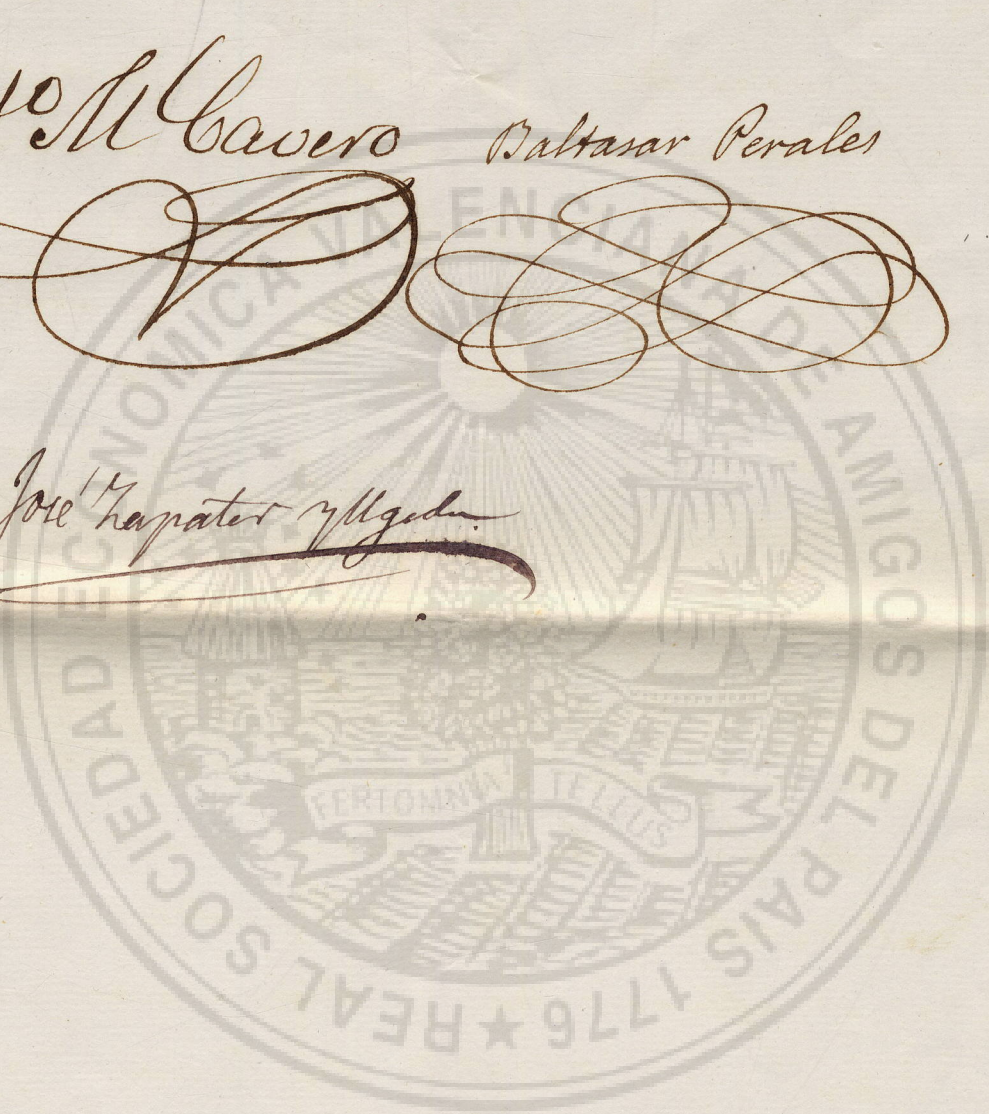 M Cavero
Baltasar Perales
José Zapater y Ugeda
REAL SOCIEDAD ECONOMICA VALENCIANA DE AMIGOS DEL PAIS 1776 ★
FERT OMNIA TELLUS